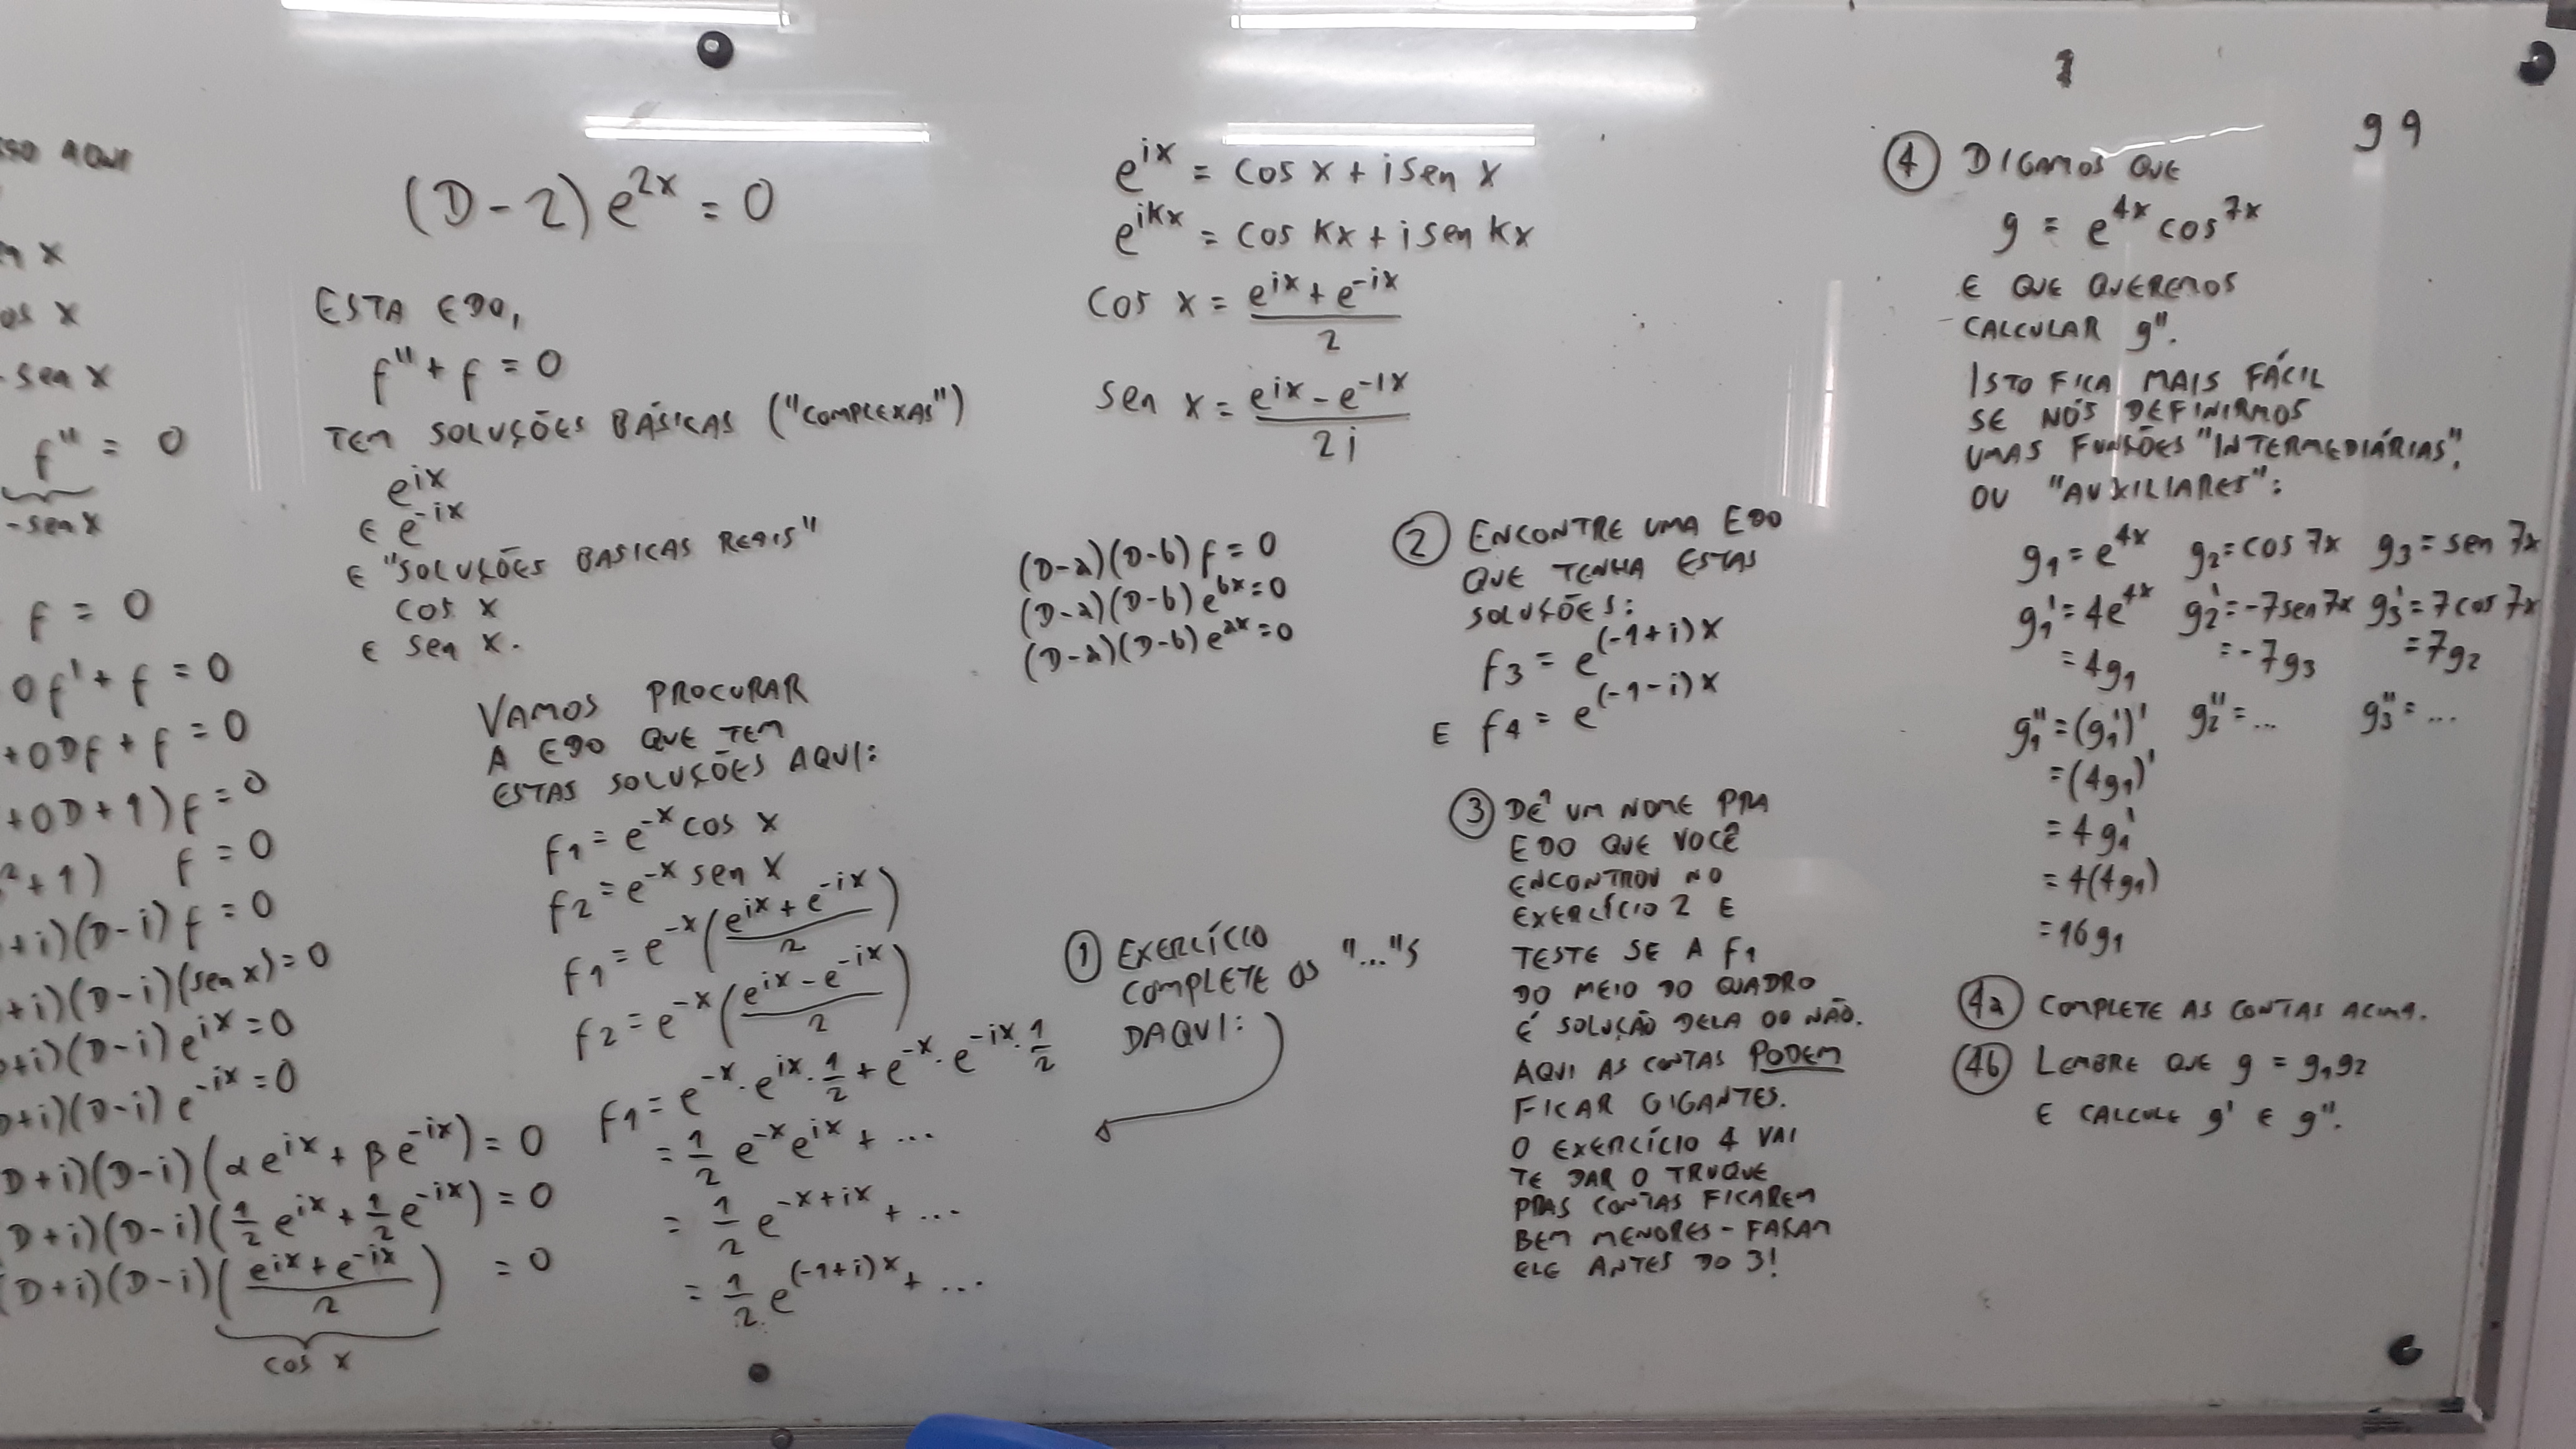 SSO AQUI
x
os x
-sen x
f'' = 0
-sen x
f = 0
0f' + f = 0
+0Df + f = 0
+0D+1)f = 0
²+1) f = 0
+i)(D-i) f = 0
+i)(D-i)(sen x) = 0
+i)(D-i) e^{ix} = 0
D+i)(D-i) e^{-ix} = 0
D+i)(D-i)(αe^{ix} + βe^{-ix}) = 0
D+i)(D-i)(1/2 e^{ix} + 1/2 e^{-ix}) = 0
(D+i)(D-i)((e^{ix} + e^{-ix})/2) = 0
cos x
(D-2) e^{2x} = 0
ESTA EDO,
f'' + f = 0
TEM SOLUÇÕES BÁSICAS ("COMPLEXAS")
e^{ix}
E e^{-ix}
E "SOLUÇÕES BASICAS REAIS"
cos x
E sen x.
VAMOS PROCURAR
A EDO QUE TEM
ESTAS SOLUÇÕES AQUI:
f1 = e^{-x} cos x
f2 = e^{-x} sen x
f1 = e^{-x}((e^{ix} + e^{-ix})/2)
f2 = e^{-x}((e^{ix} - e^{-ix})/2)
f1 = e^{-x}·e^{ix}·1/2 + e^{-x}·e^{-ix}·1/2
= 1/2 e^{-x}e^{ix} + ...
= 1/2 e^{-x+ix} + ...
= 1/2 e^{(-1+i)x} + ...
e^{ix} = cos x + i sen x
e^{ikx} = cos kx + i sen kx
cos x = (e^{ix} + e^{-ix})/2
sen x = (e^{ix} - e^{-ix})/2i
(D-a)(D-b) f = 0
(D-a)(D-b) e^{bx} = 0
(D-a)(D-b) e^{ax} = 0
① EXERCÍCIO
COMPLETE OS "..."S
DAQUI:
② ENCONTRE UMA EDO
QUE TENHA ESTAS
SOLUÇÕES:
f3 = e^{(-1+i)x}
E f4 = e^{(-1-i)x}
③ DÊ UM NOME PRA
EDO QUE VOCÊ
ENCONTROU NO
EXERCÍCIO 2 E
TESTE SE A f1
DO MEIO DO QUADRO
É SOLUÇÃO DELA OU NÃO.
AQUI AS CONTAS PODEM
FICAR GIGANTES.
O EXERCÍCIO 4 VAI
TE DAR O TRUQUE
PRAS CONTAS FICAREM
BEM MENORES - FAÇAM
ELE ANTES DO 3!
99
④ DIGAMOS QUE
g = e^{4x} cos^{7x}
E QUE QUEREMOS
CALCULAR g''.
ISTO FICA MAIS FÁCIL
SE NÓS DEFINIRMOS
UMAS FUNÇÕES "INTERMEDIÁRIAS",
OU "AUXILIARES":
g1 = e^{4x} g2 = cos 7x g3 = sen 7x
g1' = 4e^{4x} g2' = -7sen7x g3' = 7cos 7x
= 4g1 = -7g3 = 7g2
g1'' = (g1')' g2'' = ... g3'' = ...
= (4g1)'
= 4g1'
= 4(4g1)
= 16g1
(4a) COMPLETE AS CONTAS ACIMA.
(4b) LEMBRE QUE g = g1g2
E CALCULE g' E g''.